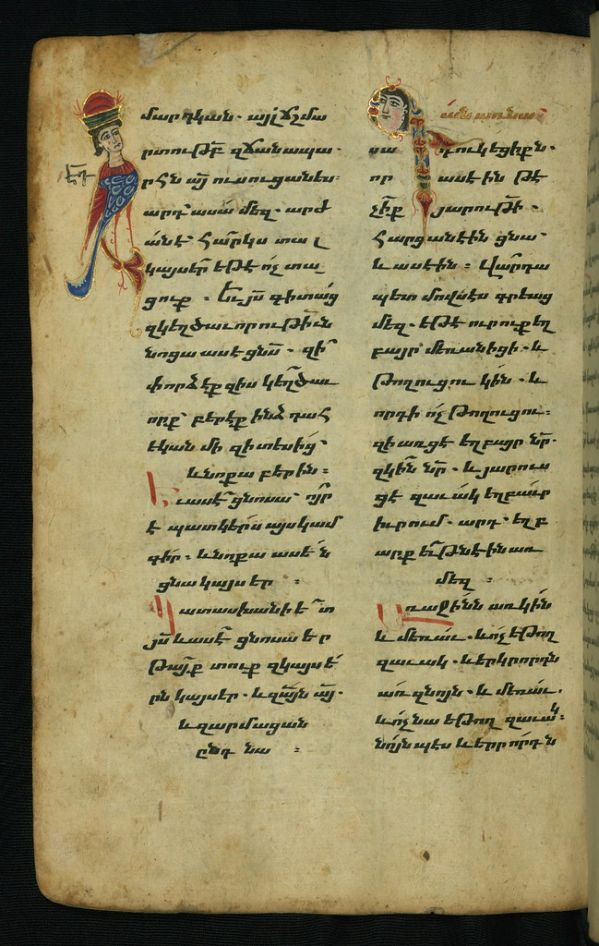 մարդկան. այլ ճշմա
րտութբ զճանապա
րհն այ ուսուցանես.
արդ՝ ասա մեզ. արժ
անէ՞ հարկս տալ
կայսեր եթէ ոչ տա
ցուք. Եւ յս գիտաց
զկեղծաւորութիւն
նոցա ասէ ցնս. զի՞
փորձէք զիս կեղծաւ
որք՝ բերէք ինձ դահ
եկան մի զի տեսից՝
և նոքա բերին.
Եւ ասէ ցնոսա. ոյր
է պատկերս այս կամ
գիր. և նոքա ասեն
ցնա կայսեր :
Պատասխանի ետ
յս և ասէ ցնոսա եր
թայք տուք զկայսե
րն կայսեր. և զայն այ.
և զարմացան
ընդ նա :
առ նա
սադուկեցիքն.
որ ասէին թէ
չիք յարութի.
Հարցանէին ցնա.
և ասէին : Վարդա
պետ մովսէս գրեաց
մեզ. եթէ ուրուք եղ
բայր մեռանիցի. և
թողուցու կին. և
որդի ոչ թողուցու:
զի առցէ եղբայր նր.
զկինն նր. և յարուս
ցէ զաւակ եղբաւր
իւրում. արդ. եղբ
արք եւթն էին առ
մեզ :
Առաջինն առ կին
և մեռաւ. և ոչ եթող
զաւակ. և երկրորդն
առ զնոյն. և մեռաւ.
և ոչ նա եթող զաւակ:
նոյնպես և երրորդն